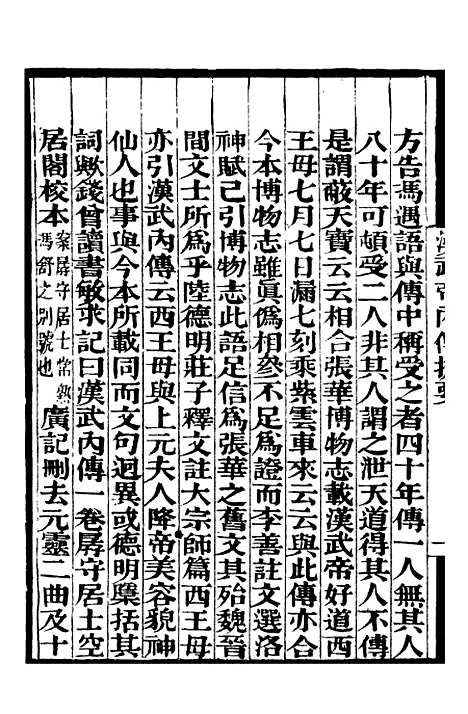 方告焉遇語與傳中稱受之者四十年傳一人無其人
八十年可頓受二人非其人謂之泄天道得其人不傳
是謂蔽天寶云云相合張華博物志載漢武帝好道西
王母七月七日漏七刻乘紫雲車來云云與此傳亦合
今本博物志雖眞僞相叅不足爲證而李善註文選洛
神賦已引博物志此語足信爲張華之舊文其殆魏晉
間文士所爲乎陸德明莊子釋文註大宗師篇西王母
亦引漢武內傳云西王母與上元夫人降帝美容貌神
仙人也事與今本所載同而文句迥異或德明檃括其
詞歟錢曾讀書敏求記曰漢武內傳一卷孱守居士空
居閣校本案孱守居士常熟馮舒之別號也廣記刪去元靈二曲及十
漢武帝內傳提要
一